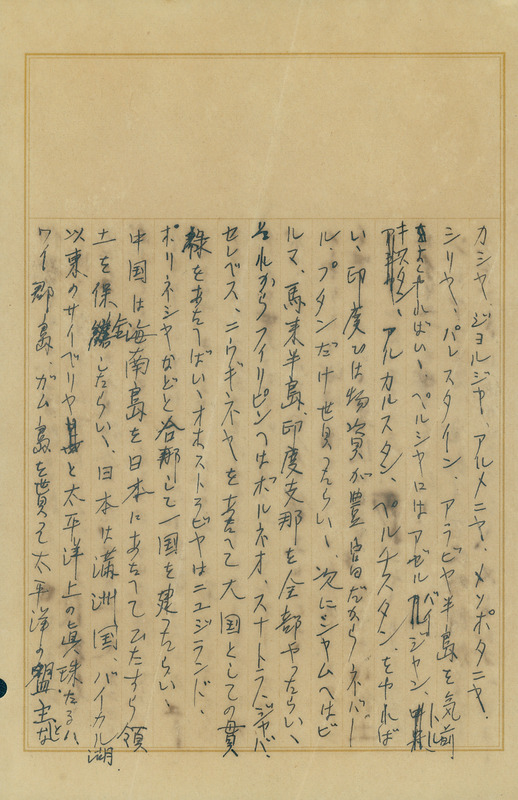 カシヤ、ジヨルジヤ、アルメニヤ、メソポタニヤ、
シリヤ、パレスタイン、アラビヤ半島を気前
よくやればいゝ ペルシヤにはアゼルバイジヤン、トル
キスタン、アルカルスタン、ペルチスタンをやれば
い、印度ひは物資が豊富だからネパー
ル、ブタンだけ貰つたらいゝ 次にシヤムへはビ
ルマ、馬来半島、印度支那を全部やつたらいゝ
それからフイリピンへはボルネオ、スマトラ、ジヤバ、
セレベス、ニウギネヤを与へて大国としての貫
禄をあたへばいゝ オオストラビヤはニユジランド、
ポリネシヤなどと合邦して一国を建つたらいゝ
中国は海南島を日本にあたへてひたすら領
土を保全したらいゝ、日本は満洲国、バイカル湖
以東のサイベリヤと太平洋上の真珠たるハ
ワイ群島、ガム島を貰て太平洋の盟主な